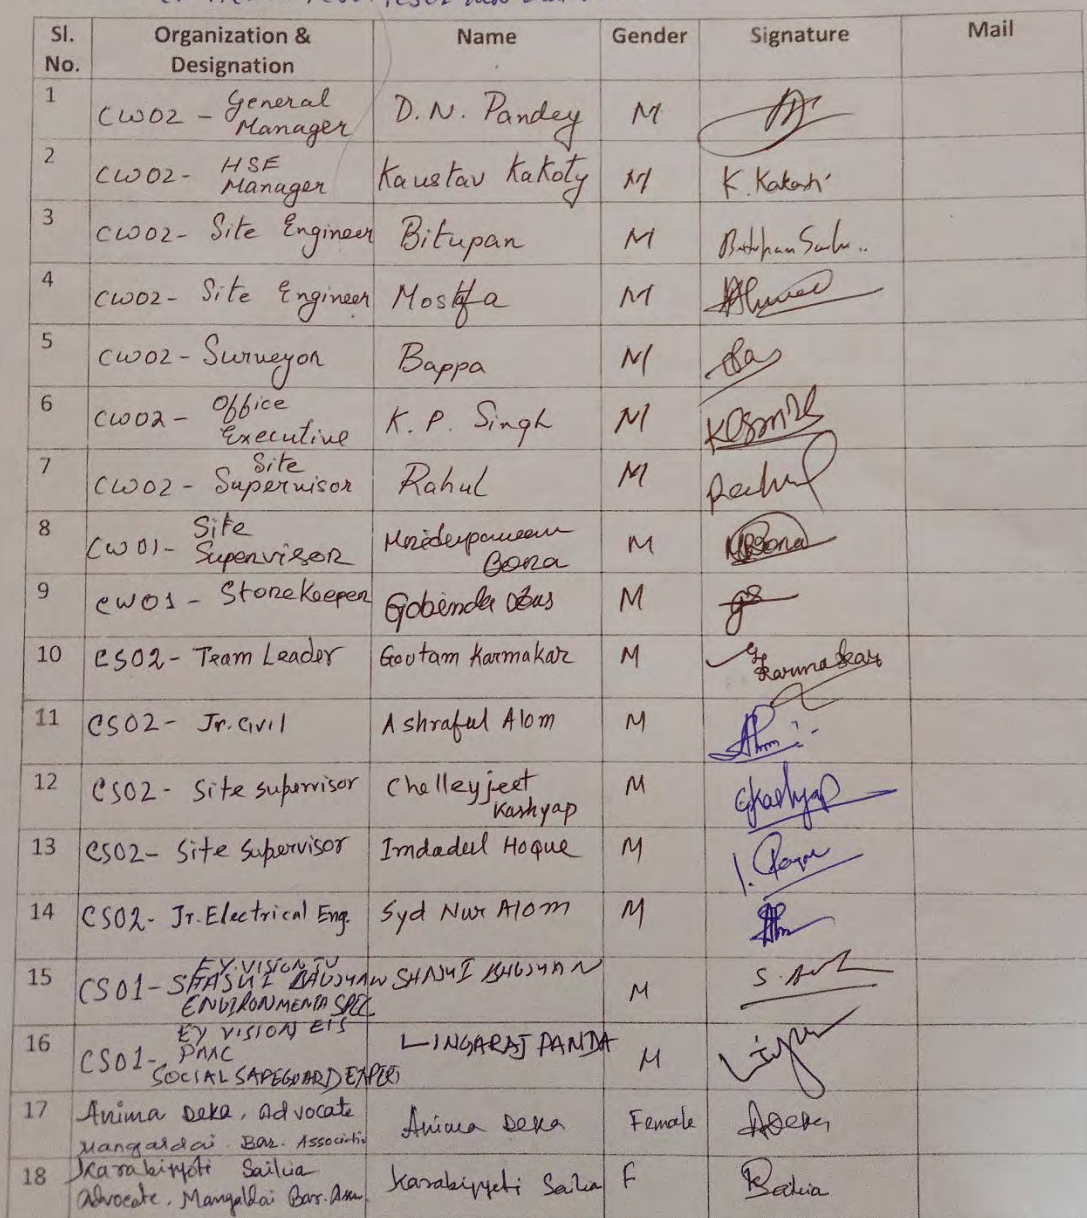 Sl. No. Organization & Designation Name Gender Signature Mail
1 CW02 - General Manager D.N. Pandey M
2 CW02- HSE Manager Kaustav Kakoty M K. Kakoti
3 CW02- Site Engineer Bitupan M
4 CW02- Site Engineer Mostafa M
5 CW02- Surveyor Bappa M
6 CW02- Office Executive K. P. Singh M
7 CW02- Site Supervisor Rahul M Rahul
8 CW01- Site Supervisor Bora M
9 CW01 - Storekeeper Gobinda Das M
10 CS02- Team Leader Goutam Karmakar M Karmakar
11 CS02- Jr. Civil Ashraful Alom M
12 CS02- Site supervisor Chelleyjeet Kashyap M GKashyap
13 CS02- Site Supervisor Imdadul Hoque M
14 CS02- Jr. Electrical Eng. Syd Nur Alom M
15 CS01- SHASHI BHUSHAN ENVIRONMENTA SPEC SHASHI BHUSHAN M
16 CS01- EY VISION EIS PMC SOCIAL SAFEGUARD EXPERT LINGARAJ PANDA M
17 Anima Deka, Advocate Mangaldai Bar. Association Anima Deka Female ADeka
18 Karabijyoti Saikia Advocate, Mangaldai Bar. Karabijyoti Saikia F Saikia